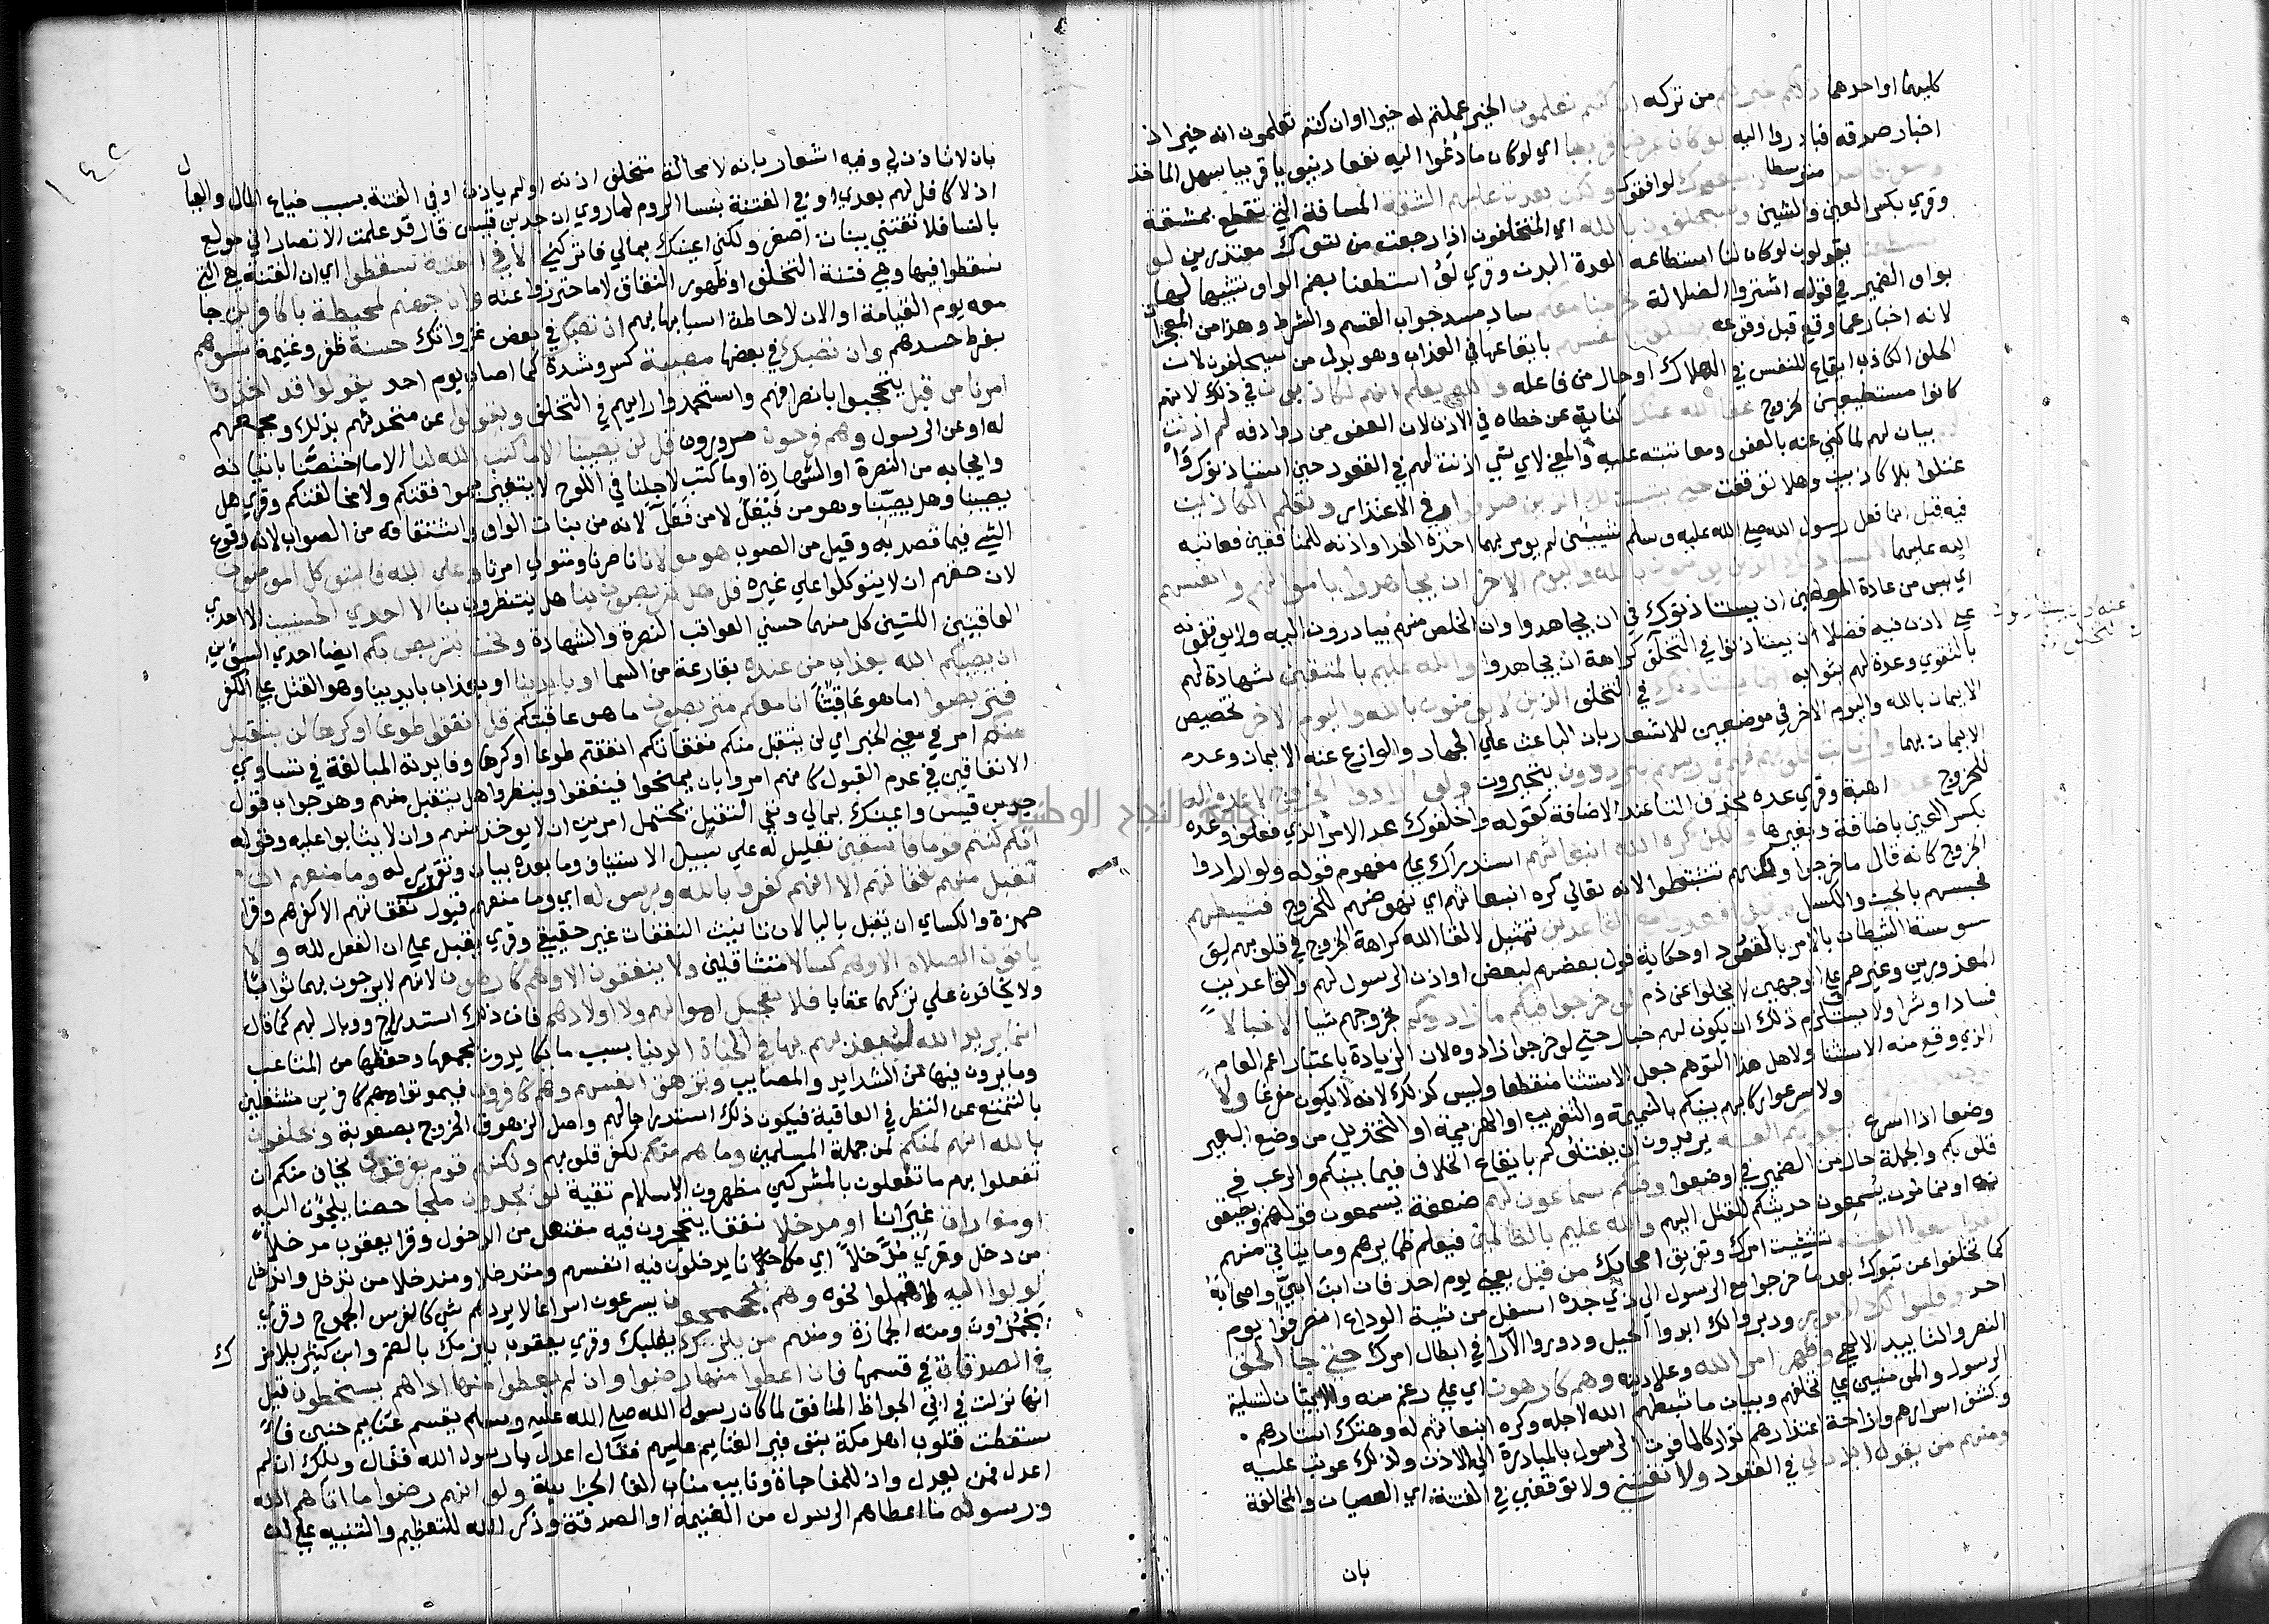 كليهما او احدهما ذلكم خير لكم من تركه ان كنتم تعلمون الخير عملتم له خيرا او ان كنتم تعلمون انه خير اذ
اخبار صدقه فبادروا اليه لو كان عرضا قريبا اي لو كان ما دُعُوا اليه نفعا دنيويا قريبا سهل الماخذ
متوسطا لاتبعوك لوافقوك ولكن بعدت عليهم الشقة المسافة التي تقطع بمشقة
وقري بكسر العين والشين وسيحلفون بالله اي المتخلفون اذا رجعت من تبوك معتذرين لو
استطعنا يقولون لو كان لنا استطاعه العدة او البدن وقري لوُ استطعنا بضم الواو تشبيها لها
بواو الضمير في قوله اشتروا الضلالة لخرجنا معكم ساد مسد جوابي القسم والشرط وهذا من المعجزات
لانه اخبار عما وقع قبل وقوعه يهلكون انفسهم بايقاعها في العذاب وهو بدل من سيحلفون لان
الحلف الكاذب ايقاع للنفس في الهلاك او حال من فاعله والله يعلم انهم لكاذبون في ذلك لانهم
كانوا مستطيعين الخروج عفا الله عنك كناية عن خطاه في الاذن لان العفو من روادفه لم اذنت
لهم بيان لهم لما كني عنه بالعفو ومعاتبته عليه والمعني لاي شي اذنت لهم في القعود حين استاذنوك و
اعتلوا بالاكاذيب وهلا توقفت حتي يتبين لك الذين صدقوا في الاعتذار وتعلم الكاذبين
فيه قيل انما فعل رسول الله صلي الله عليه وسلم شيئين لم يومر بهما اخذه الفدا واذنه للمنافقين فعاتبه
الله عليهما لا يستاذنك الذين يومنون بالله واليوم الاخر ان يجاهدوا باموالهم وانفسهم
اي ليس من عادة المومنين ان يستاذنوك في ان يجاهدوا وان الخلص منهم يبادرون اليه ولا يوقفونه
علي الاذن فيه فضلا ان يستاذنوا في التخلف كراهة ان يجاهدوا والله عليم بالمتقين شهادة لهم
بالتقوي وعدة لهم بثوابه انما يستاذنك في التخلف الذين لا يومنون بالله واليوم الاخر تخصيص
الايمان بالله واليوم الاخر في موضعين للاشعار بان الباعث علي الجهاد والوازع عنه الايمان وعدم
الايمان بهما وارتابت قلوبهم فهم في ريبهم يترددون يتحيرون ولو ارادوا الخروج لاعدوا له
للخروج عدة اهبة وقري عده بحذف التا عند الاضافة كقوله واخلفوك عد الامر الذي وعدوا وعده
بكسر العين باضافة وبغيرها ولكن كره الله انبعاثهم استدراك علي مفهوم قوله ولو ارادوا
الخروج كانه قال ما خرجوا ولكنهم تثبطوا لانه تعالي كره انبعاثهم اي نهوضهم للخروج فثبطهم
فحبسهم بالجبن والكسل وقيل اقعدوا مع القاعدين تمثيل لالقا الله كراهة الخروج في قلوبهم او
وسوسة الشيطان بالامر بالقعود او حكاية قول بعضهم لبعض او اذن الرسول لهم والقاعدين
المعذورين وغيرهم وعلي الوجهين لا يخلوا عن ذم لو خرجوا فيكم ما زادوكم بخروجهم شيا الا خبالا
فسادا وشرا ولا يستلزم ذلك ان يكون لهم خبال حتي لو خرجوا زادوه لان الزيادة باعتبار اعم العام
الذي وقع منه الاستثنا ولاجل هذا التوهم جعل الاستثنا منقطعا وليس كذلك لانه لا يكون مفرغا ولا
ولاسرعوا ركايبهم بينكم بالنميمة والتضريب او الهزيمة او التخذيل من وضع البعير
وضعا اذا اسرع يبغونكم الفتنة يريدون ان يفتنوكم بايقاع الخلاف فيما بينكم والرعب في
قلوبكم والجملة حال من الضمير في اوضعوا وفيكم سماعون لهم ضعفة يسمعون قولهم ويطيعونهم
او نمامون يسمعون حديثكم للنقل اليهم والله عليم بالظالمين فيعلم ضمايرهم وما يتاتي منهم
لقد ابتغوا الفتنة تشتيت امرك وتفريق اصحابك من قبل يعني يوم احد فان ابن ابيّ واصحابه
كما تخلفوا عن تبوك بعد ما خرجوا مع الرسول الي ذي جده اسفل من ثنية الوداع انصرفوا يوم
احد وقلبوا لك الامور ودبروا لك المكايد والحيل ودوروا الآرا في ابطال امرك حتي جا الحق
النصر والتاييد الالهي وظهر امر الله وعلا دينه وهم كارهون اي علي رغم منهم والايتان لتسلية
الرسول والمومنين علي تخلفهم وبيان ما ثبطهم الله لاجله وكره انبعاثهم له وهتك استارهم
وكشف اسرارهم وازاحة اعتذارهم تداركا لما فوت الرسول بالمبادرة الي الاذن ولذلك عوتب عليه
ومنهم من يقول ايذن لي في القعود ولا تفتني ولا توقعني في الفتنة اي العصيان والمخالفة
بان
بان لا تاذن لي وفيه اشعار بانه لا محالة متخلف اذن له او لم ياذن او في الفتنة بسبب ضياع المال والعيال
اذ لا كافل لهم بعدي او في الفتنة بنسا الروم لما روي ان جد بن قيس قال قد علمت الانصار اني مولع
بالنسا فلا تفتني ببنات اصفر ولكني اعينك بمالي فاتركني الا في الفتنة سقطوا اي ان الفتنة هي التي
سقطوا فيها وهي فتنة التخلف او ظهور النفاق لا ما احترزوا عنه وان جهنم لمحيطة بالكافرين جا
معه يوم القيامة او الان لاحاطة اسبابها بهم ان تصبك في بعض غزواتك حسنة ظفر وغنيمة تسوهم
بفرط حسدهم وان تصبك في بعضها مصيبة كسر وشدة كما اصاب يوم احد يقولوا قد اخذنا
امرنا من قبل يتبجحوا بانصرافهم واستحمدوا رايهم في التخلف ويتولوا عن متحدثهم بذلك ومجمعهم
له او عن الرسول وهم فرحون مسرورون قل لن يصيبنا الا ما كتب الله لنا الا ما اختصنا باثباته
وايجابه من النصرة او الشهادة او ما كتب لاجلنا في اللوح لا يتغير بموافقتكم ولا مخالفتكم وقري هل
يصيبنا وهل يصيّبنا وهو من فيعل لا من فعّل لانه من بنات الواو واشتقاقه من الصواب لانه وقوع
الشي فيما قصد به وقيل من الصوب هو مولانا ناصرنا ومتولي امرنا وعلي الله فليتوكل المومنون
لان حقهم ان لا يتوكلوا علي غيره قل هل تربصون بنا هل ينتظرون بنا الا احدي الحسنيين الا احدي
العاقبتين اللتين كل منهما حسني العواقب النصرة والشهادة ونحن نتربص بكم ايضا احدي السوئين
ان يصيبكم الله بعذاب من عنده بقارعة من السما او بايدينا او بعذاب بايدينا وهو القتل علي الكفر
فتربصوا ما هو عاقبتنا انا معكم متربصون ما هو عاقبتكم قل انفقوا طوعا او كرها لن يتقبل
منكم امر في معني الخبر اي لن يتقبل منكم نفقاتكم انفقتم طوعا او كرها وفايدته المبالغة في تساوي
الانفاقين في عدم القبول كانهم امروا بان يمتحنوا فينفقوا وينظروا هل يتقبل منهم وهو جواب قول
جد بن قيس واعينك بمالي ونفي التقبل يحتمل امرين ان لا يوخذ منهم وان لا يثابوا عليه وقوله
انكم كنتم قوما فاسقين تعليل له علي سبيل الاستيناف وما بعده بيان وتقرير له وما منعهم ان
تقبل منهم نفقاتهم الا انهم كفروا بالله وبرسوله اي وما منعهم قبول نفقاتهم الا كفرهم وقرا
حمزة والكساي ان يقبل باليا لان تانيث النفقات غير حقيقي وقري يقبل علي ان الفعل لله ولا
ياتون الصلاة الا وهم كسالا متثاقلين ولا ينفقون الا وهم كارهون لانهم لا يرجون بهما ثوابا
ولا يخافون علي تركهما عقابا فلا تعجبك اموالهم ولا اولادهم فان ذلك استدراج ووبال لهم كما قال
انما يريد الله ليعذبهم بها في الحياة الدنيا بسبب ما يكابدون لجمعها وحفظها من المتاعب
وما يرون فيها من الشدايد والمصايب وتزهق انفسهم وهم كافرون فيموتوا وهم كافرين مشتغلين
بالتمتع عن النظر في العاقبة فيكون ذلك استدراجا لهم واصل الزهوق الخروج بصعوبة ويحلفون
بالله انهم لمنكم لمن جملة المسلمين وما هم منكم لكفر قلوبهم ولكنهم قوم يفرقون يخافون منكم ان
تفعلوا بهم ما تفعلون بالمشركين مظهرون الاسلام تقية لو يجدون ملجا حصنا يلجؤن اليه
او مغارات غيرانا او مدخلا نفقا ينجحرون فيه مفتعل من الدخول وقرا يعقوب مدخلا
من دخل وقري مُدخلاً اي مكانا يدخلون فيه انفسهم ومتدخلا ومندخلا من تدخل واندخل
لولوا اليه لاقبلوا نحوه وهم يجمحون يسرعون اسراعا لا يردهم شي كالفرس الجموح وقري
يجمزون ومنه الجمازة ومنهم من يلمزك يعيبك وقري يعقوب يلمزك بالضم وابن كثير يلامزك
في الصدقات في قسمها فان اعطوا منها رضوا وان لم يعطوا منها اذا هم يسخطون قيل
انها نزلت في ابي الجواظ المنافق لما كان رسول الله صلي الله عليه وسلم يقسم غنايم حنين فا
ستعطف قلوب اهل مكة بتوفير الغنايم عليهم فقال اعدل يا رسول الله فقال ويلك ان لم
اعدل فمن يعدل واذا للمفاجاة ونايب مناب الفا الجزايية ولو انهم رضوا ما اتاهم الله
ورسوله ما اعطاهم الرسول من الغنيمة او الصدقة وذكر الله للتعظيم والتنبيه علي ان
جامعة النجاح الوطنية